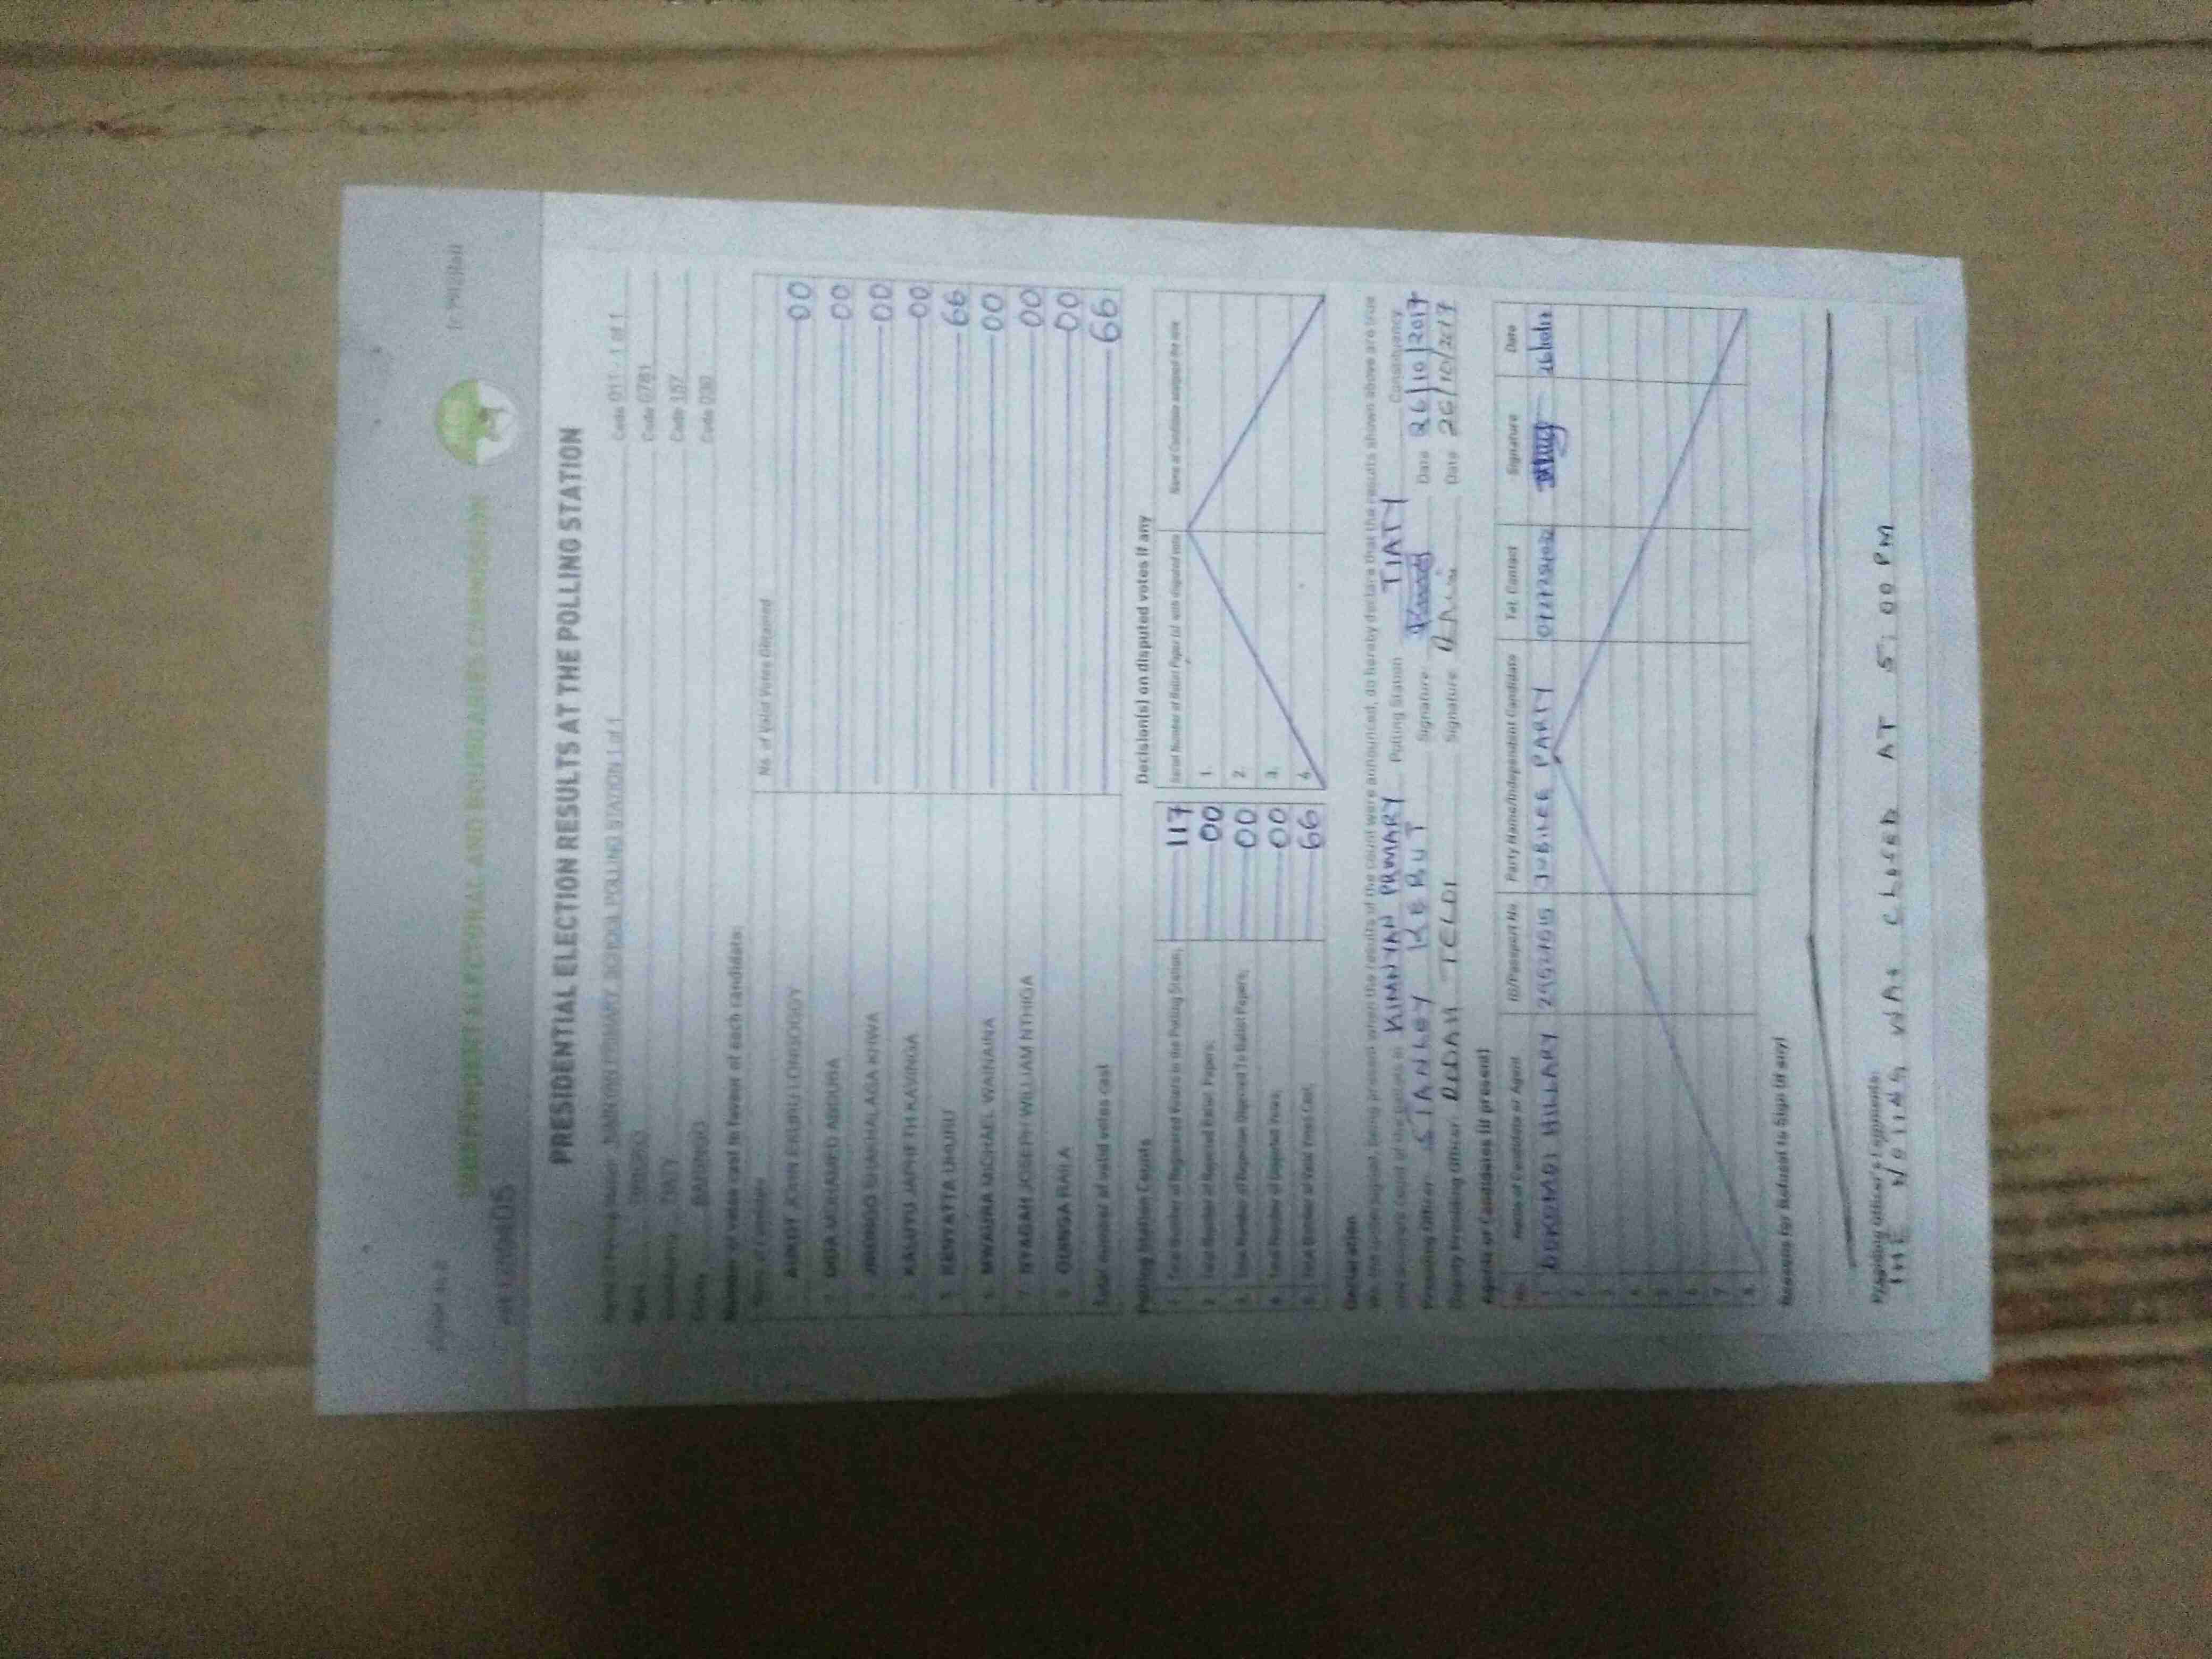 INDEPENDENT ELECTORAL AND BOUNDARIES COMMISSION
PRESIDENTIAL ELECTION RESULTS AT THE POLLING STATION
PRIMARY SCHOOL POLLING STATION 1 of 1 Code 011 - 1 of 1
Code 0781
TIATY Code 157
BARINGO Code 030
Number of votes cast in favour of each candidate:
Name of Candidate No. of Valid Votes Obtained
1 AUKOT JOHN EKURU LONGOGGY 00
2 DIDA MOHAMED ABDUBA 00
3 JIRONGO SHAKHALAGA KHWA 00
4 KALUYU JAPHETH KAVINGA 00
5 KENYATTA UHURU 66
6 MWAURA MICHAEL WAINAINA 00
7 NYAGAH JOSEPH WILLIAM NTHIGA 00
8 ODINGA RAILA 00
Total number of valid votes cast 66
Polling Station Counts
1. Total Number of Registered Voters in the Polling Station; 117
2. Total Number of Rejected Ballot Papers; 00
3. Total Number of Rejection Objected To Ballot Papers; 00
4. Total Number of Disputed Votes; 00
5. Total Number of Valid Votes Cast; 66
Decision(s) on disputed votes if any
Serial Number of Ballot Paper (s) with disputed vote Name of Candidate awarded the vote
1.
2.
3.
4.
Declaration
We, the undersigned, being present when the results of the count were announced, do hereby declare that the results shown above are true
and accurate count of the ballots in KIMNYAN PRIMARY Polling Station TIATY Constituency
Presiding Officer: STANLEY KERUT Signature: Date 26/10/2017
Deputy Presiding Officer: DIDAH TELDI Signature: Date 26/10/2017
Agents of Candidates (if present)
No. Name of Candidate or Agent ID/Passport No Party Name/Independent Candidate Tel. Contact Signature Date
1 HILLARY JUBILEE PARTY
2
3
4
5
6
7
8
Reasons for Refusal to Sign (if any)
Presiding Officer's Comments:
THE VOTING WAS CLOSED AT 5:00 PM